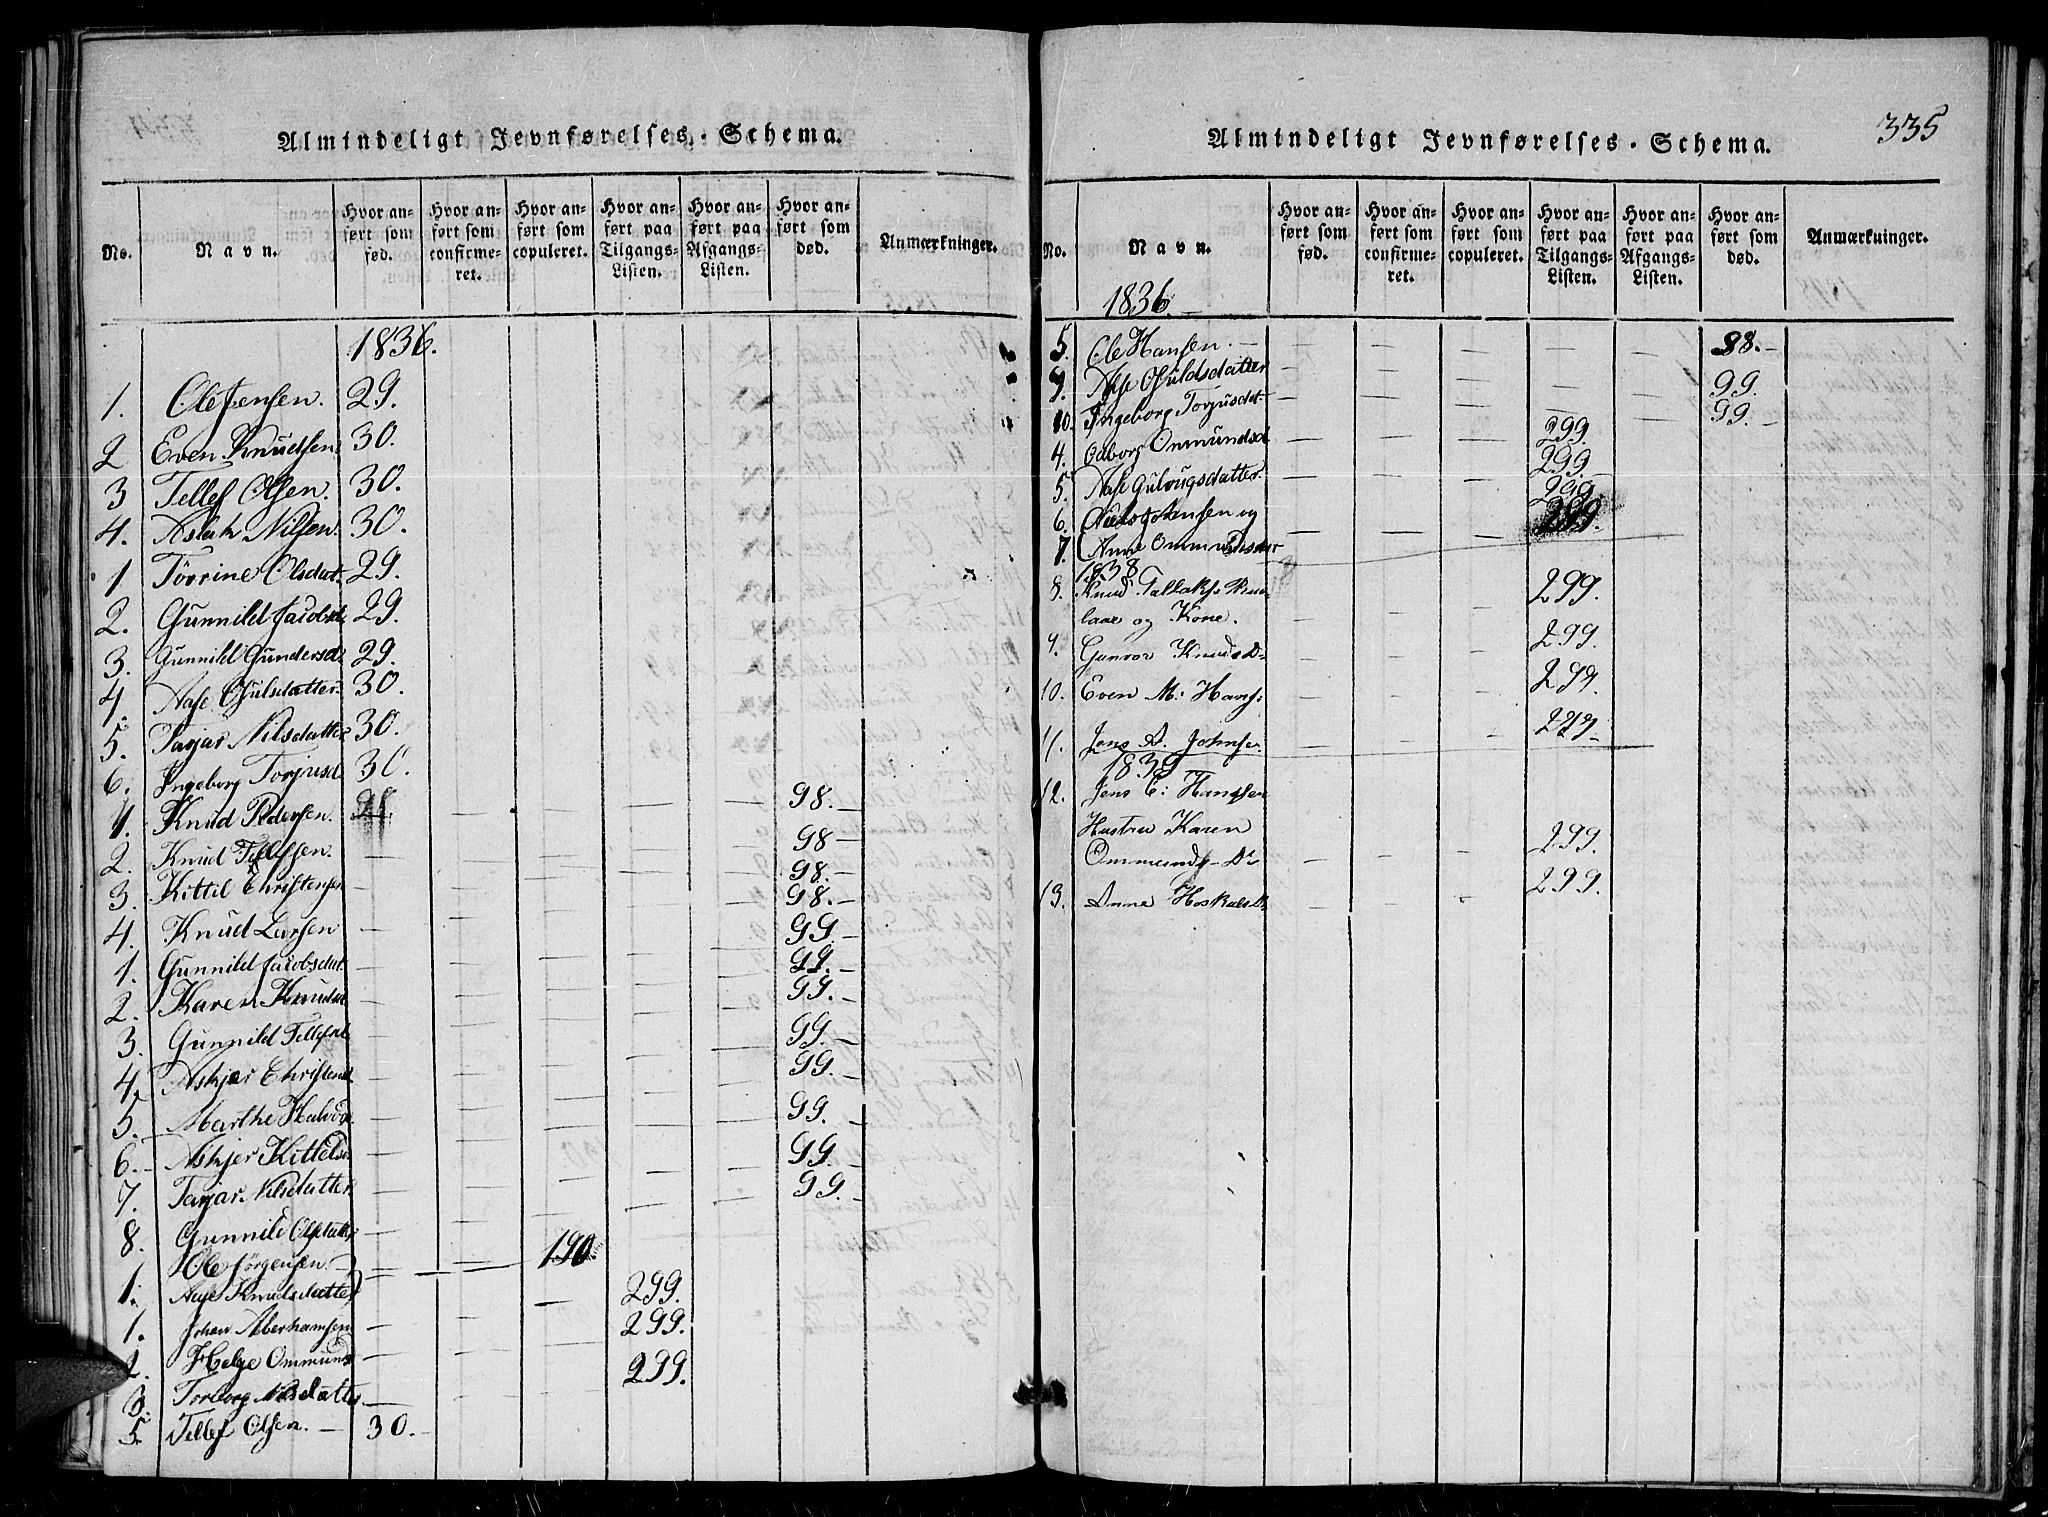 Almindeligt Jevnførelses-Schema.
No.
Navn.
Hvor anført som fød.
Hvor anført som confirmeret.
Hvor anført som copuleret.
Hvor anført paa Tilgangs-Listen.
Hvor anført paa Afgangs-Listen.
Hvor anført som død.
Anmærkninger.
1836.
1. Ole Jensen. 29.
2 Even Knudsen. 30.
3 Tellef Olsen. 30.
4. Aslak Nilsen. 30.
1 Torrine Olsdat. 29.
2. Gunnild Jacobsd. 29.
3. Gunnild Gundersd. 29.
4. Aase Gulsdatter. 30.
5. Tarjar Nilsdatter 30.
6. Ingeborg Torjusd. 30.
1. Knud Pedersen. 98.
2. Knud Tellefsen. 98
3. Kittil Christensen 98.
4. Knud Larsen 98.
1. Gunnild Jacobsdat. 99
2. Karen Knudsd 99.
3. Gunnild Tellefsd. 99.
4. Askjer Christensd 99.
5. Marthe Halvors 99.
6. Askjer Kittelsd. 99.
7. Tarjar Nilsdatter. 99.
8. Gunnild Olsdatter 99.
Ole Jörgensen.
1. Aase Knudsdatter 190.
1. Johan Aberhamsen 299.
2. Helge Ommunds 299.
3. Torborg Nilsdatter 299.
5. Tellef Olsen. 30.
335
Almindeligt Jevnførelses-Schema.
No.
Navn.
Hvor anført som fød.
Hvor anført som confirmeret.
Hvor anført som copuleret.
Hvor anført paa Tilgangs-Listen.
Hvor anført paa Afgangs-Listen.
Hvor anført som død.
Anmærkninger.
1836.
5. Ole Hansen. 98.
9. Aase Gulsdatter 99.
10. Ingeborg Torjusdat. 99.
4. Odborg Ommundsd 299.
5. Aase Gulougsdatter. 299.
6. Jensen og 299.
7. Anne Ommundsdar 299.
1838
8. Knud Tallaks.
laae og Kone. 299.
9. Gunvor Knuds D. 299.
10. Even M. Hans: 299.
11. Jens A. Johnse. 299.
1839
12. Jens E: Hansen
Hustru Karen
Ommunds Dr 299.
13. Anne D. 299.